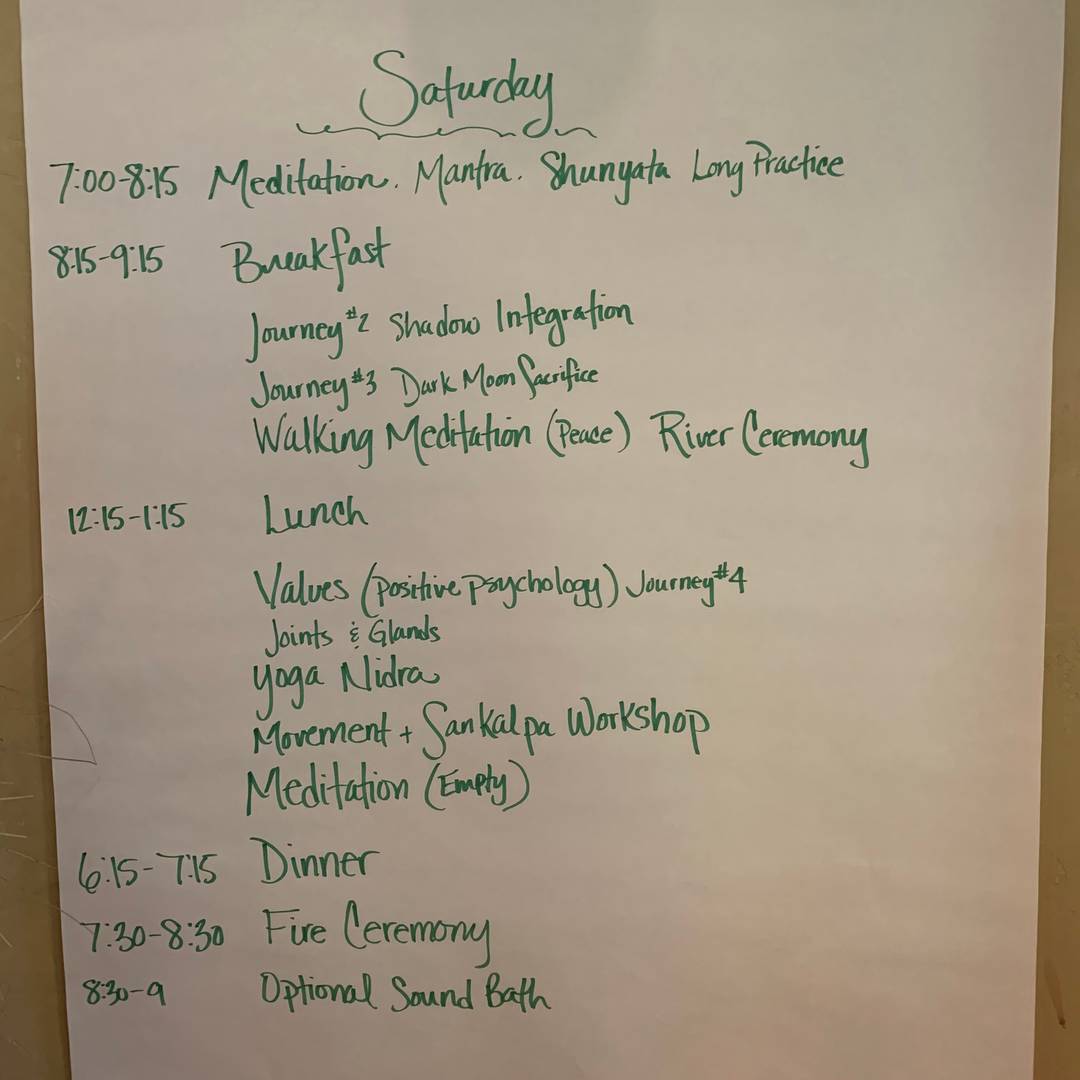 Saturday
7:00-8:15 Meditation. Mantra. Shunyata Long Practice
8:15-9:15 Breakfast
Journey #2 Shadow Integration
Journey #3 Dark Moon Sacrifice
Walking Meditation (Peace) River Ceremony
12:15-1:15 Lunch
Values (positive psychology) Journey #4
Joints & Glands
Yoga Nidra
Movement + Sankalpa Workshop
Meditation (Empty)
6:15-7:15 Dinner
7:30-8:30 Fire Ceremony
8:30-9 Optional Sound Bath